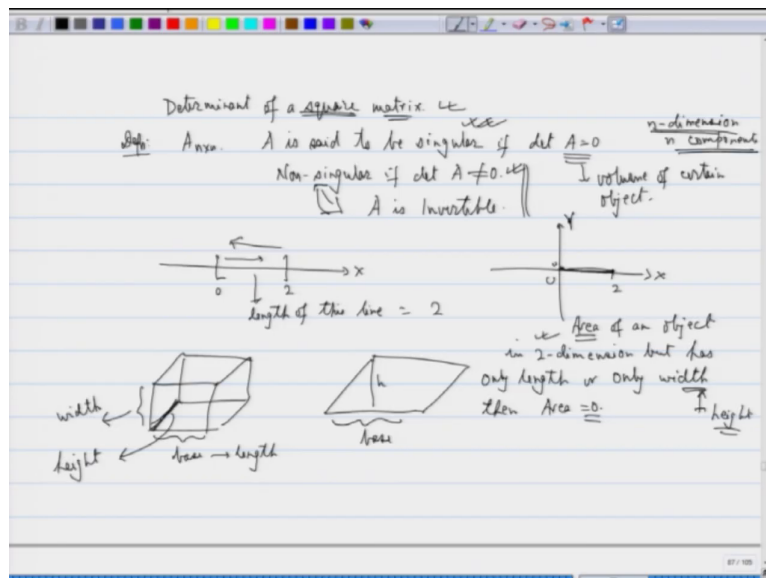 Determinant of a square matrix.
Defn: Anxn. A is said to be singular if det A=0
n-dimension
n components
Non-singular if det A ≠0.
A is Invertible.
volume of certain object.
0 2 X
length of this line = 2
Y
0 2 X
Area of an object
in 2-dimension but has
only length or only width
then Area =0.
height
width
height
base → length
h
base
87 / 105